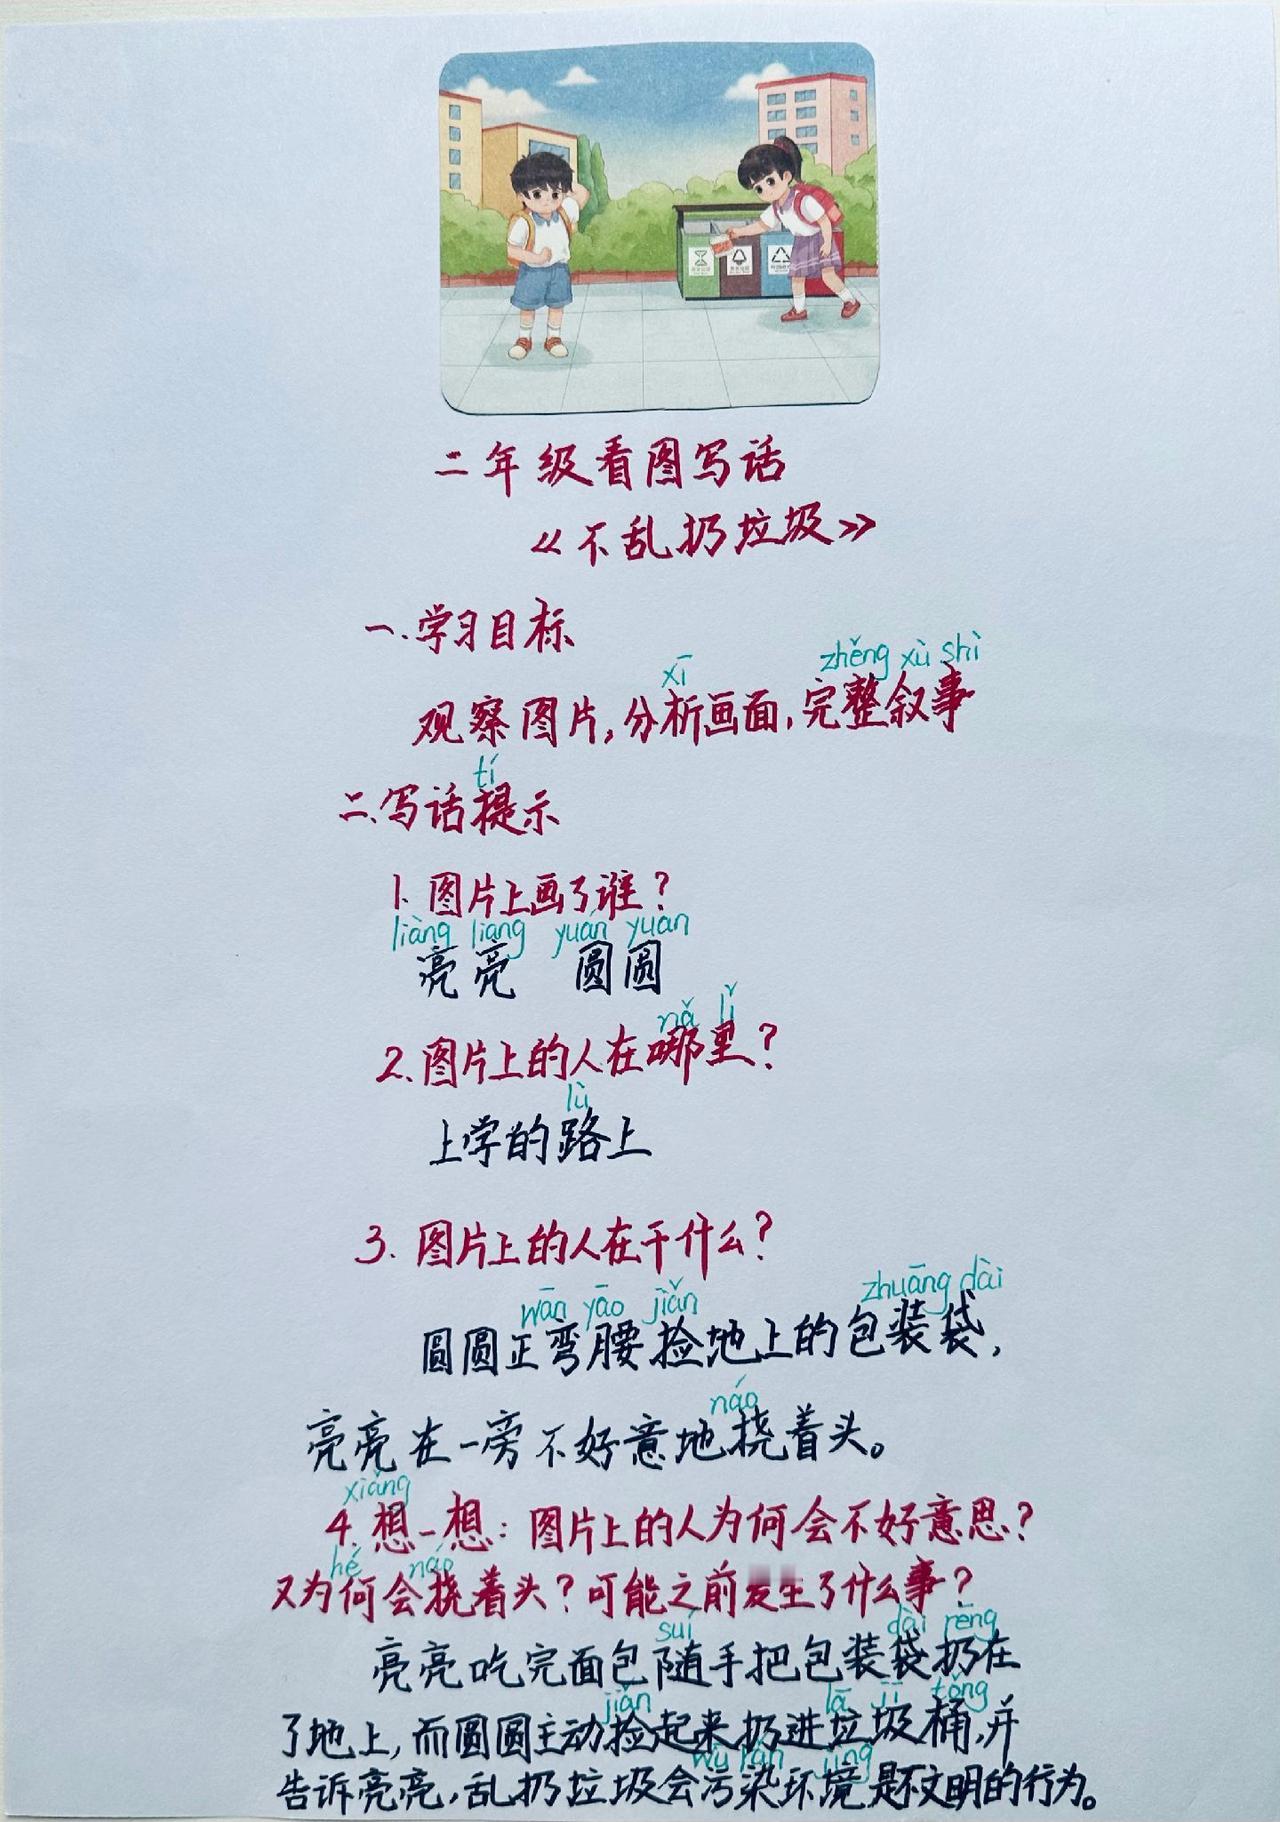 二年级看图写话
《不乱扔垃圾》
一.学习目标
xī zhěng xù shì
观察图片,分析画面,完整叙事
tí
二.写话提示
1.图片上画了谁?
liàng liang yuán yuan
亮亮 圆圆
nǎ lǐ
2.图片上的人在哪里?
lù
上学的路上
3.图片上的人在干什么?
wān yāo jiǎn zhuāng dài
圆圆正弯腰捡地上的包装袋,
náo
亮亮在一旁不好意地挠着头。
xiǎng
4.想一想:图片上的人为何会不好意思?
hé náo
又为何会挠着头?可能之前发生了什么事?
suí dài rēng
亮亮吃完面包随手把包装袋扔在
jiǎn lā jī tǒng
了地上,而圆圆主动捡起来扔进垃圾桶,并
wū rǎn jìng
告诉亮亮,乱扔垃圾会污染环境是不文明的行为。